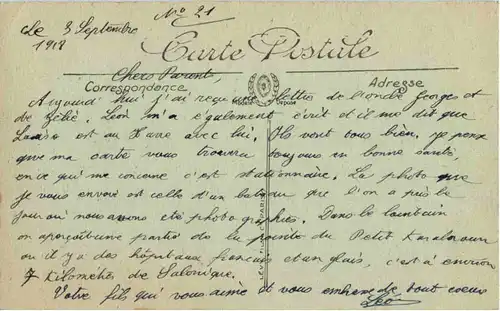 Le 3 Septembre
1918
No 21
Carte Postale
Chers Parents,
Correspondance
Adresse
Aujourd'hui j'ai reçu une lettre de l'oncle Georges et
de Zélie. Léon m'a également écrit et il me dit que
est au Havre avec lui. Ils vont tous bien. Je pense
que ma carte vous trouvera toujours en bonne santé,
en ce qui me concerne c'est stationnaire. La photo que
je vous envoie est celle d'un bateau que l'on a pris le
jour où nous avons été photographiés. Dans le lointain
on aperçoit une partie de la pointe du Petit Karabouroun
où il y a des hôpitaux français et anglais, c'est à environ
7 kilomètres de Salonique.
Votre fils qui vous aime et vous embrasse de tout cœur
Léon